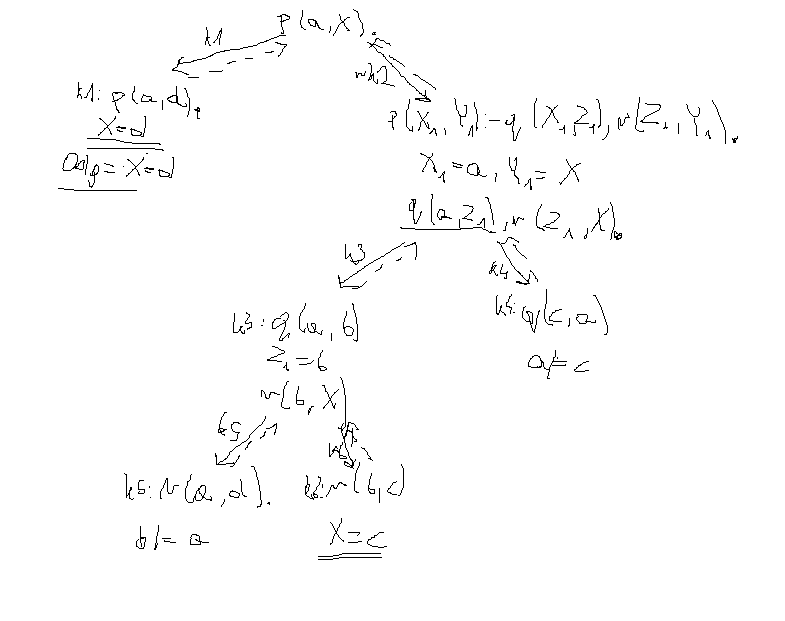 p(a,X).
k1
k2
k1: p(a,d).
X=d
Odp = X=d
p(X₁,Y₁):-q(X₁,Z₁),r(Z₁,Y₁).
X₁=a, Y₁=X
q(a,Z₁),r(Z₁,X).
k3
k4
k3: q(a,b)
Z₁=b
r(b,X)
k4: q(c,a)
a≠c
k5
k6
k5: r(a,d).
k6: r(b,c)
b≠a
X=c